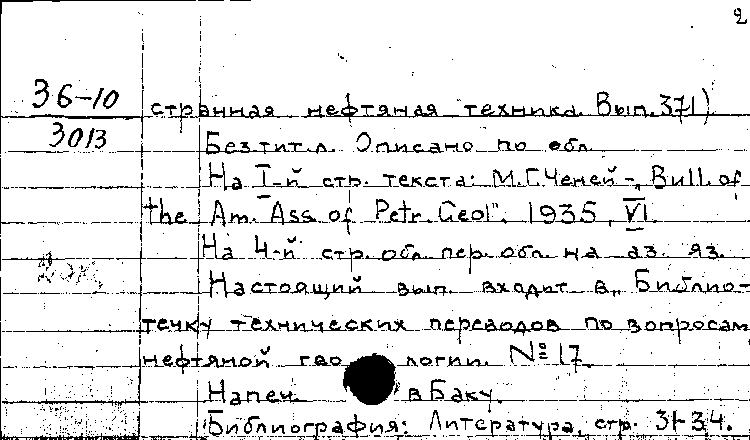 2
36-10
3013
странная нефтяная техника. Вып. 371)
Без тит. л. Описано по обл.
На I-й стр. текста: М.Г. Ченей -„ Bull. of
the Am. Ass. of Petr. Geol". 1935, VI.
На 4-й стр. обл. пер. обл. на аз. яз.
Настоящий вып. входит в „Библио-
течку технических переводов по вопросам
нефтяной геологии. № 17.
Напеч. в Баку.
Библиография: Литература, стр. 31-34.